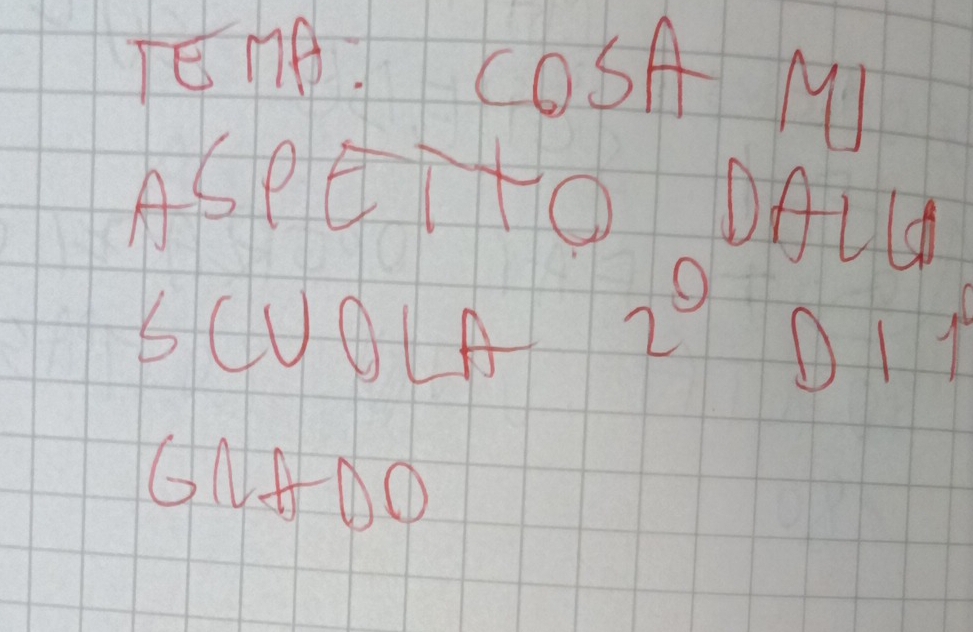 TEMA: COSA MI
ASPETTO DALLA
SCUOLA 2° DI 1°
GRADO